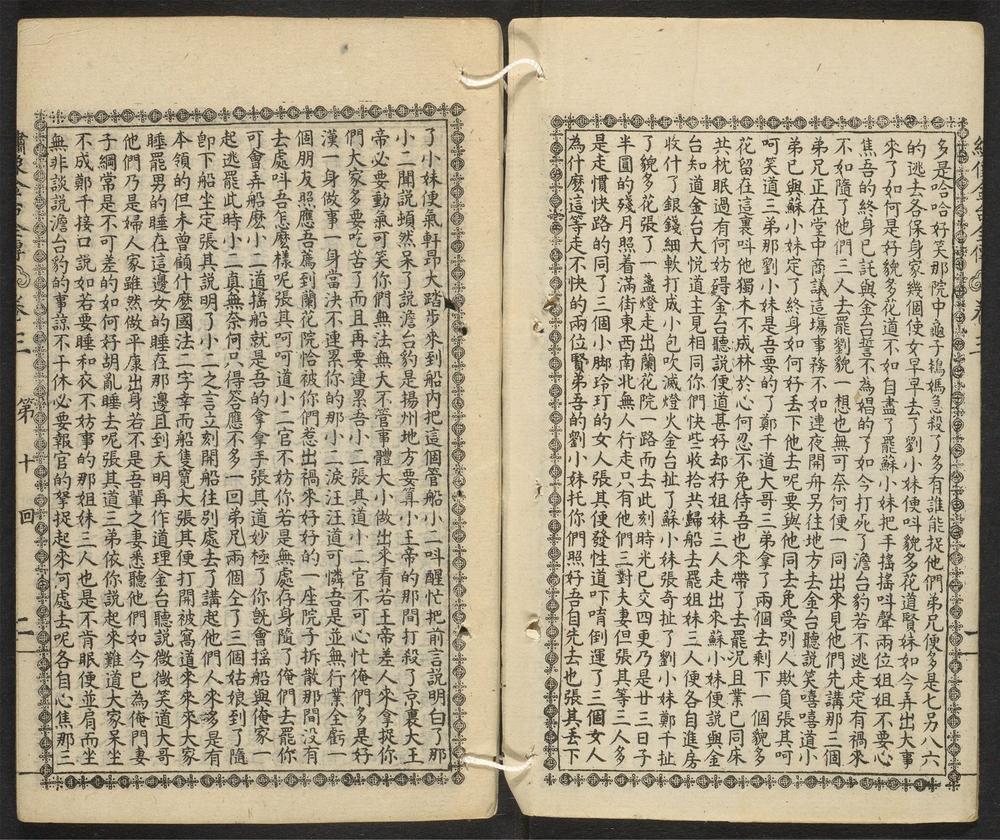 多是哈哈好笑那院中龜子鴇媽急殺了多有誰能捉他們弟兄便多是七另八六
的逃去各保身家幾個使女早早去了劉小妹便呌貌多花道賢妹如今弄出大事
來了如何是好貌多花道不如自盡了罷蘇小妹把手搖搖呌聲兩位姐姐不要心
焦吾的終身已託與金台誓不為娼的了如今打死了澹台豹若不逃走定有禍來
不如隨了他們三人去罷劉貌一想也無可奈何便一同出來見他們先講那三個
弟兄正在堂中商議這塲事務不如連夜開舟另往地方去金台聽說笑嘻嘻道小
弟已與蘇小妹定了終身如何好丢下他去呢要與他同去免受別人欺負張其呵
呵笑道三弟那劉小妹是吾要的了鄭千道大哥三弟拿了兩個去剩下一個貌多
花留在這裏呌他獨木不成林於心何忍不免待吾也來帶了去罷况且業已同床
共枕眠過有何妨碍金台聽說便道甚好却好姐妹三人走出來蘇小妹便說與金
台知道金台大悅道主見相同你們快些收拾共歸船去罷姐妹三人便各自進房
收什了銀錢細軟打成小包吹滅燈火金台扯了蘇小妹張奇扯了劉小妹鄭千扯
了貌多花張了一盞燈走出蘭花院一路而去此刻時光已交四更乃是廿三日子
半圓的殘月照着滿街東西南北無人行走只有他們三對夫妻但張其等三人多
是走慣快路的同了三個小脚玲玎的女人張其便發性道吓唷倒運了三個女人
為什麽這等走不快的兩位賢弟吾的劉小妹托你們照好吾自先去也張其丢下
了小妹便氣軒昻大踏步來到船內把這個管船小二呌醒忙把前言說明白了那
小二聞說頓然呆了說澹台豹是揚州地方要算小王帝的那間打殺了京裏大王
帝必要動氣可笑你們無法無大不管事體大小做出來看若王帝差人來拿捉你
們大家多要吃苦了而且再要連累吾小二張其道小二官不可心忙俺們多是好
漢一身做事一身當決不連累你的那小二淚汪汪道可憐吾是並無行業全虧一
個朋友照應吾薦到蘭花院恰被你們惹出禍來好好的一座院子拆散那間没有
去處呌吾怎麽樣呢張其呵呵道小二官不妨你若是無處存身隨了俺們去罷你
可會弄船麽小二道搖船就是吾的拿拿手張其道妙極了你旣會搖船與俺家一
起逃罷此時小二真無奈何只得答應不多一回弟兄兩個仝了三個姑娘到了隨
卽下船坐定張其說明了小二之言立刻開船往別處去了講起他們人來多是有
本領的但未曾顧什麽國法二字幸而船隻寬大張其便打開被窩道來來來大家
睡罷男的睡在這邊女的睡在那邊且到天明再作道理金台聽說微微笑道大哥
他們乃是婦人家雖然做平康出身若不是吾輩之妻悉聽他們如今已為俺門妻
子綱常是不可差的如何好胡亂睡去呢張其道三弟依你說起來難道大家呆坐
不成鄭千接口說如若要睡和衣不妨事的那姐妹三人也是不肯眠便並肩而坐
無非談說澹台豹的事諒不干休必要報官的拏捉起來何處去呢各自心焦那三
卷三
第十回
二